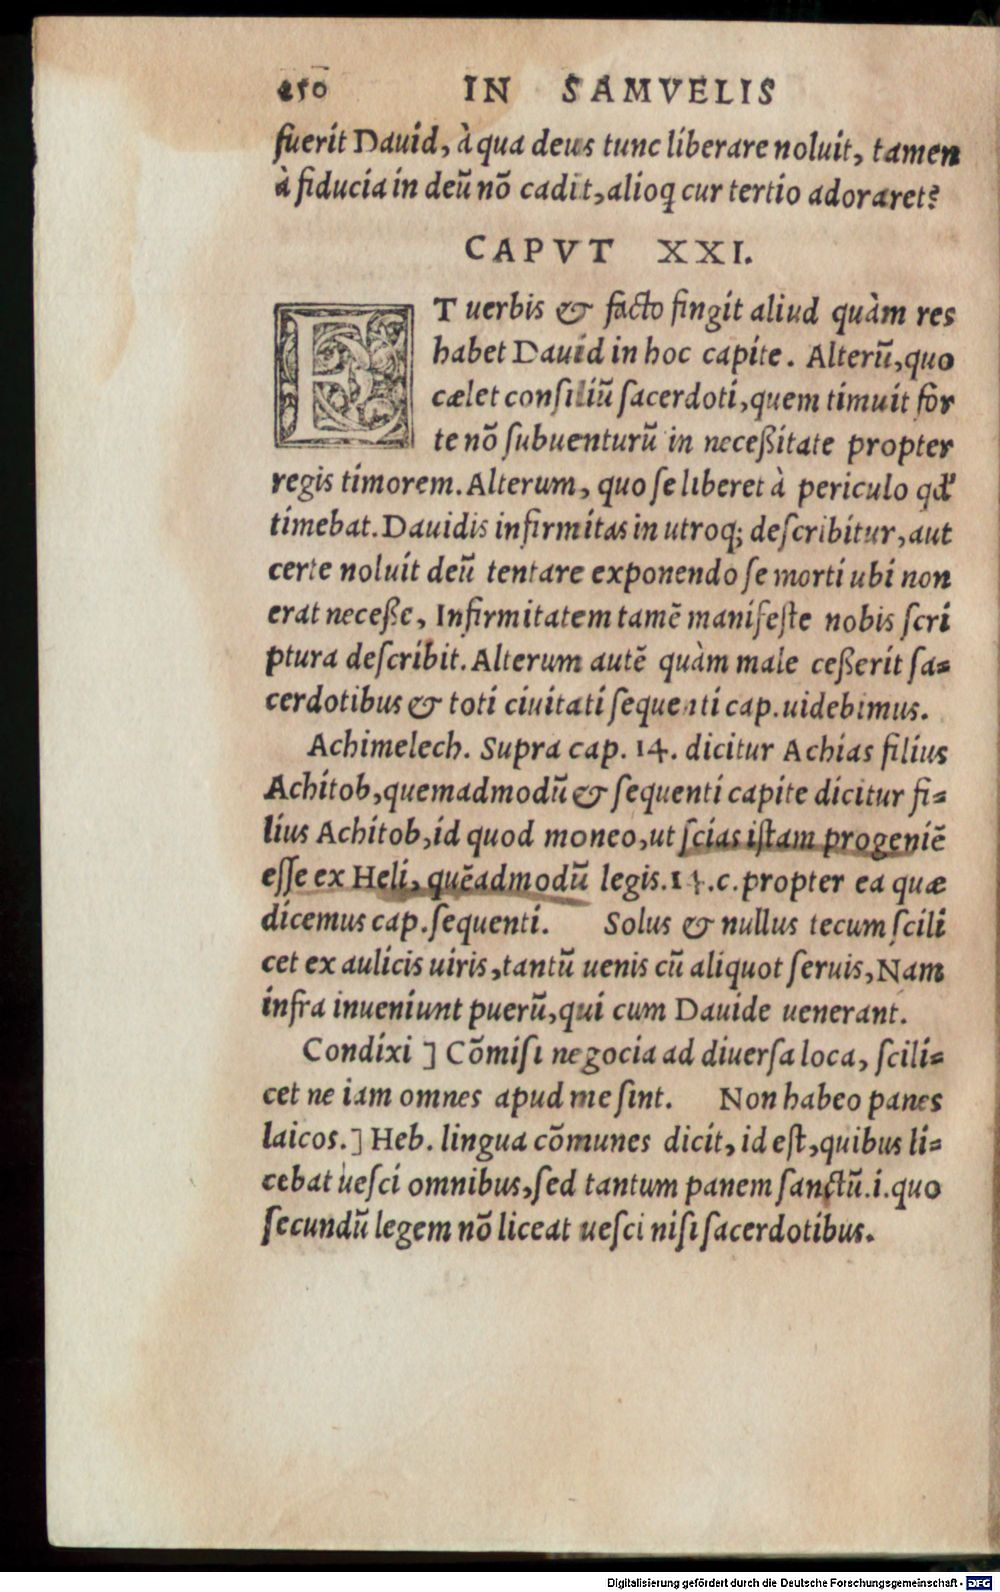 250 IN SAMVELIS
fuerit Dauid, à qua deus tunc liberare noluit, tamen
à fiducia in deũ nõ cadit, alioq cur tertio adoraret?
CAPVT XXI.
ET uerbis & facto fingit aliud quàm res
habet Dauid in hoc capite. Alterũ, quo
cælet consiliũ ſacerdoti, quem timuit for
te nõ ſubuenturũ in neceßitate propter
regis timorem. Alterum, quo ſe liberet à periculo qd'
timebat. Dauidis infirmitas in utroq; deſcribitur, aut
certe noluit deũ tentare exponendo ſe morti ubi non
erat neceße, Infirmitatem tamẽ manifeſte nobis ſcri
ptura deſcribit. Alterum autẽ quàm male ceßerit ſa=
cerdotibus & toti ciuitati ſequenti cap. uidebimus.
Achimelech. Supra cap. 14. dicitur Achias filius
Achitob, quemadmodũ & ſequenti capite dicitur fi=
lius Achitob, id quod moneo, ut ſcias iſtam progeniẽ
eſſe ex Heli, quẽadmodũ legis. 14. c. propter ea quæ
dicemus cap. ſequenti. Solus & nullus tecum ſcili
cet ex aulicis uiris, tantũ uenis cũ aliquot ſeruis, Nam
infra inueniunt puerũ, qui cum Dauide uenerant.
Condixi ] Cõmiſi negocia ad diuerſa loca, ſcili=
cet ne iam omnes apud me ſint. Non habeo panes
laicos. ] Heb. lingua cõmunes dicit, id eſt, quibus li=
cebat ueſci omnibus, ſed tantum panem ſanctũ .i. quo
ſecundũ legem nõ liceat ueſci niſi ſacerdotibus.
Digitalisierung gefördert durch die Deutsche Forschungsgemeinschaft - DFG